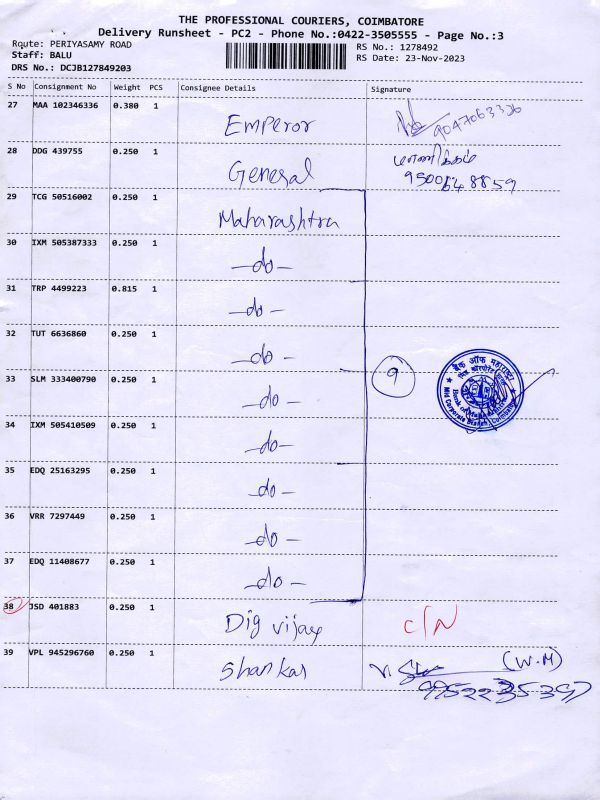 THE PROFESSIONAL COURIERS, COIMBATORE
Delivery Runsheet - PC2 - Phone No.:0422-3505555 - Page No.:3
Rqute: PERIYASAMY ROAD
RS No.: 1278492
Staff: BALU
RS Date: 23-Nov-2023
DRS No.: DCJB127849203
S No Consignment No Weight PCS Consignee Details Signature
27 MAA 102346336 0.380 1 Emperor 9047063336
28 DDG 439755 0.250 1 General மாணிக்கம்
9500648859
29 TCG 50516002 0.250 1 Maharashtra
30 IXM 505387333 0.250 1 —do—
31 TRP 4499223 0.815 1 —do—
32 TUT 6636860 0.250 1 —do—
33 SLM 333400790 0.250 1 —do— 9
बैंक ऑफ महाराष्ट्र
Bank of Maharashtra
Mid Corporate Branch, Coimbatore
34 IXM 505410509 0.250 1 —do—
35 EDQ 25163295 0.250 1 —do—
36 VRR 7297449 0.250 1 —do—
37 EDQ 11408677 0.250 1 —do—
38 JSD 401883 0.250 1 Dig vijay C/N
39 VPL 945296760 0.250 1 Shankar (W.M)